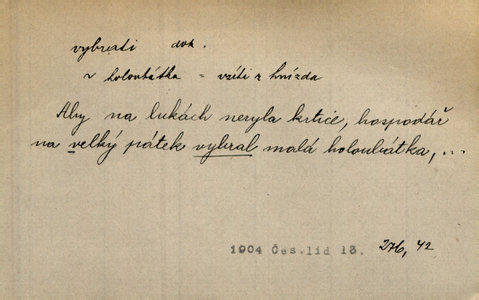 vybrati dok.
~ holoubátka = vzíti z hnízda
Aby na lukách neryla krtice, hospodář
na velký pátek vybral malá holoubátka, ...
1904 Čes. lid 13. 276, 42